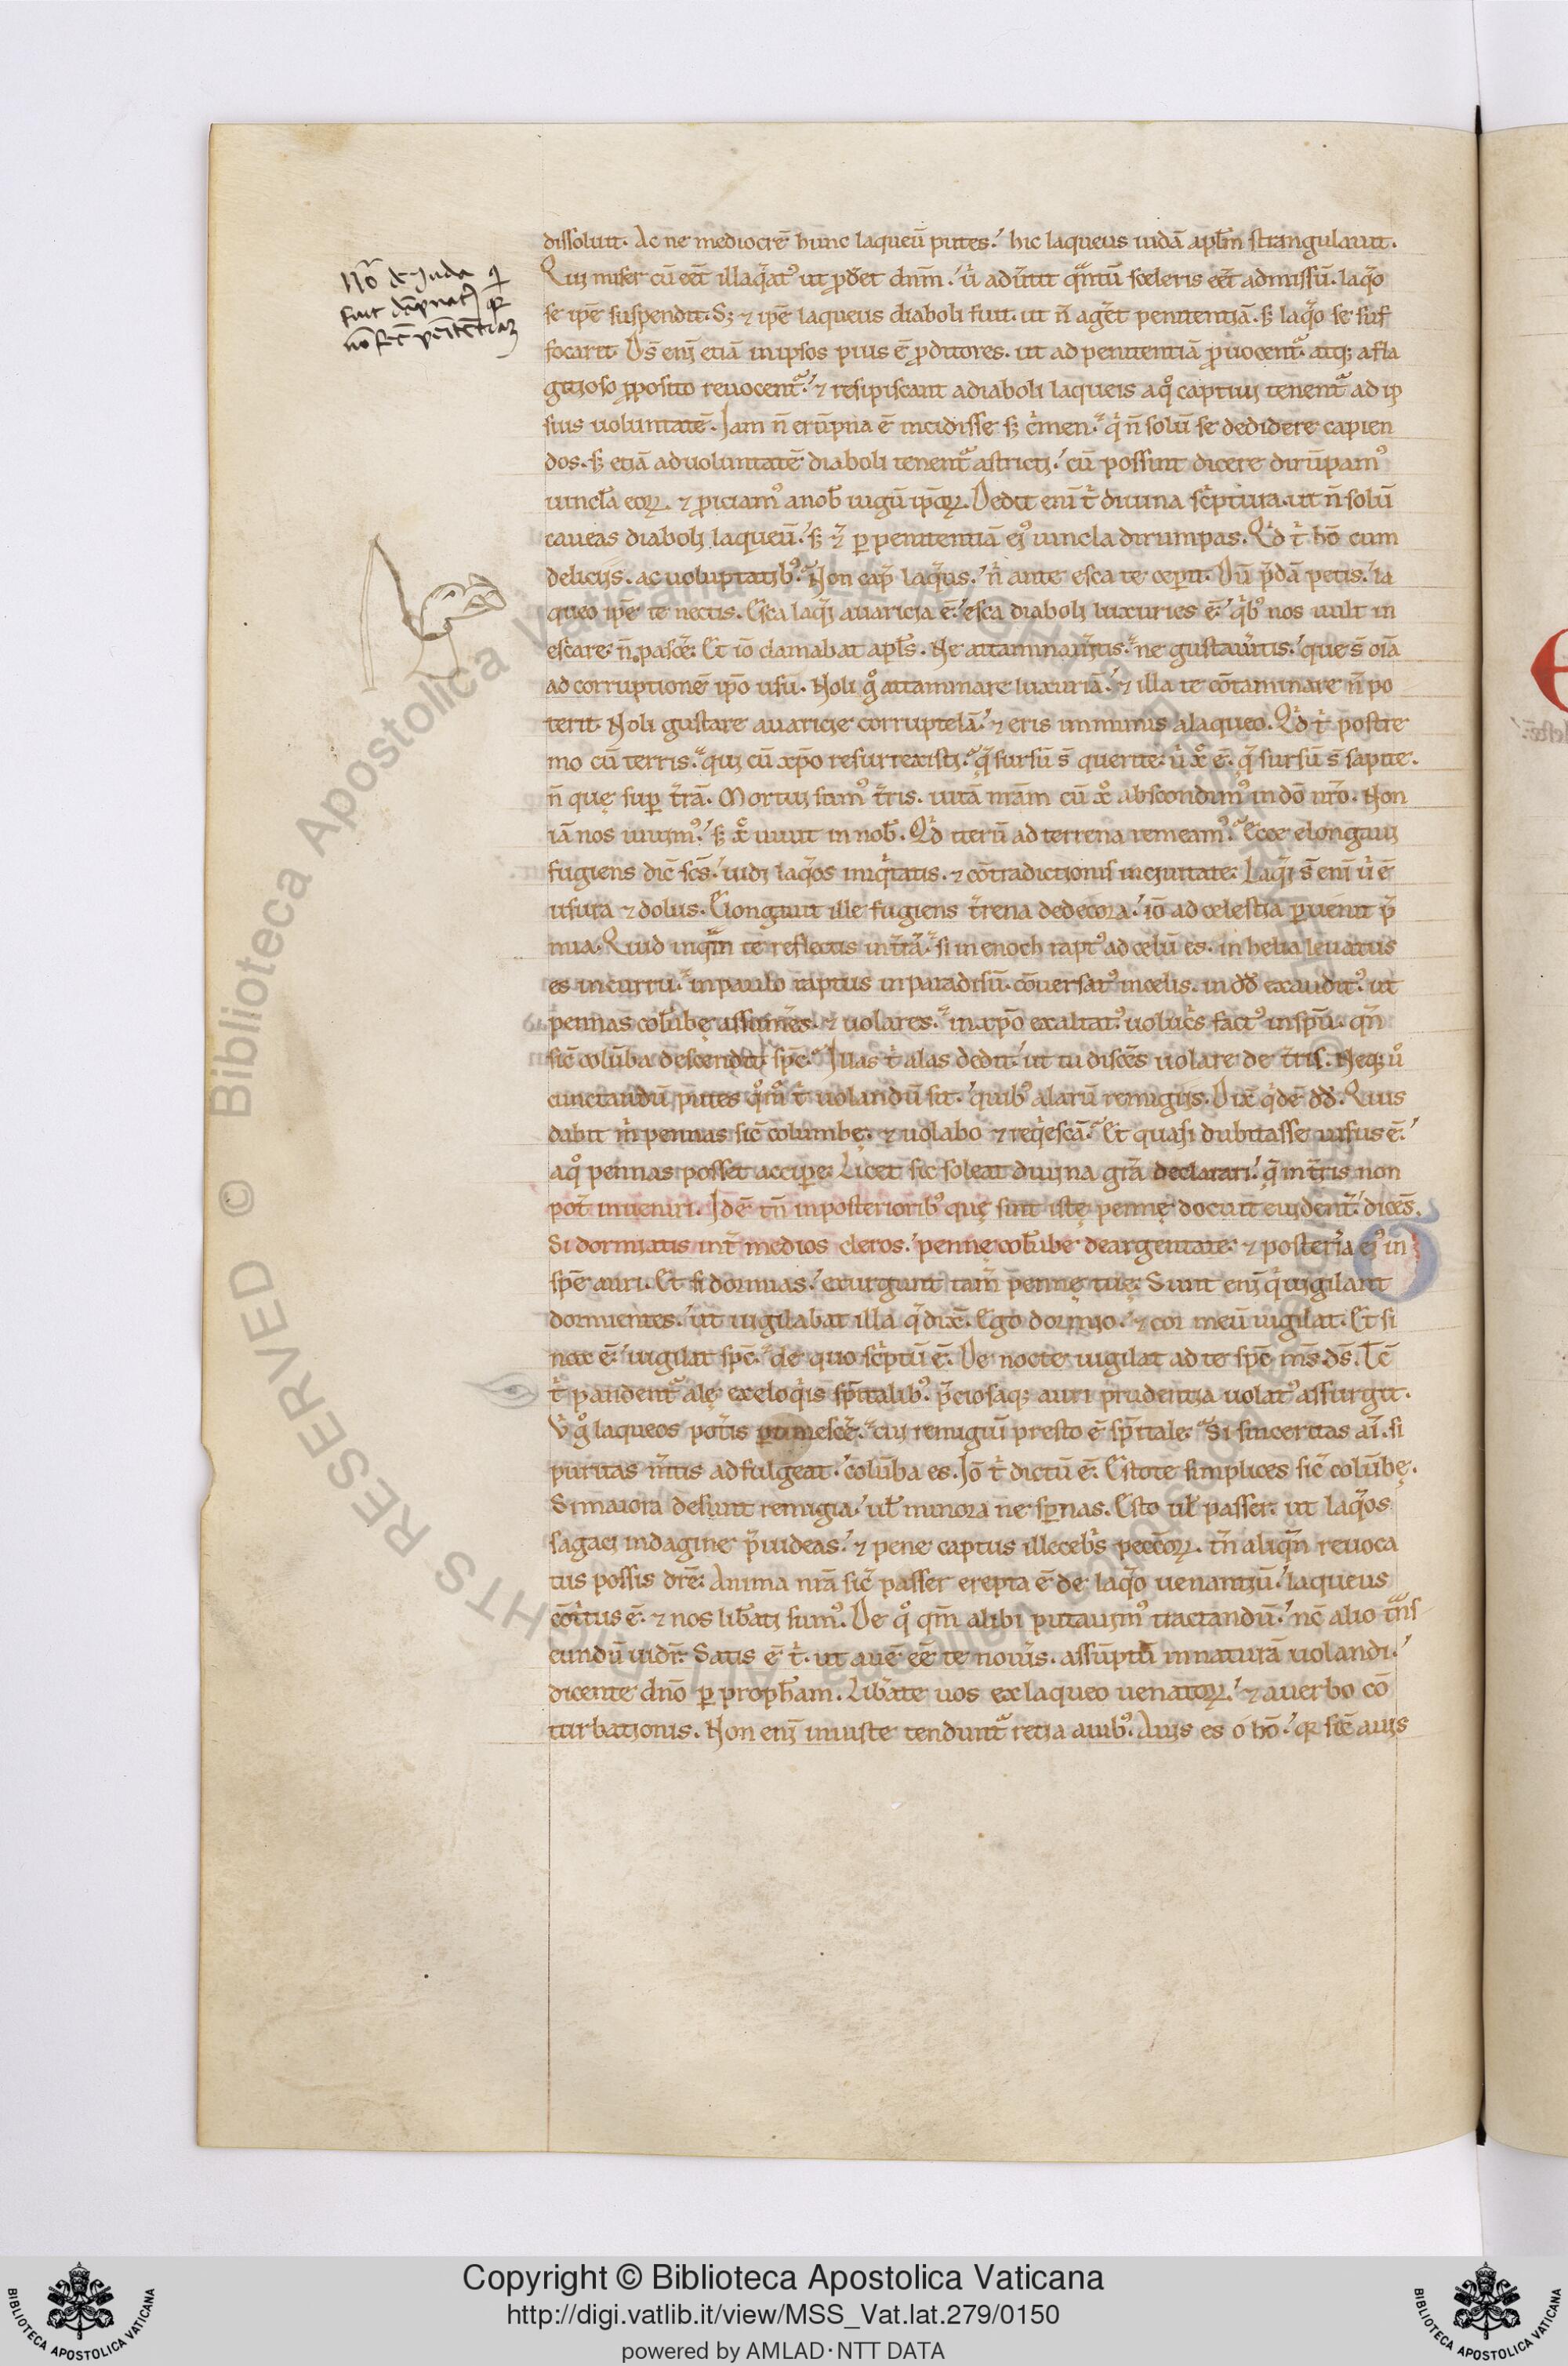 dissoluit. Ac ne mediocrē hunc laqueū putes. hic laqueus iudā apl̄m strangulauit.
Qui miser cū eēt illaq̄at⁹ ut ꝓderet dn̄m. u͛ aduertit q̄ntū sceleris eēt admissū. laq̄o
se ip̄e suspendit. Sꝫ ⁊ ip̄e laqueus diaboli fuit. ut n̄ aget penitentiā. sꝫ laq̄o se suf
focarit. Ds̄ eni etiā in ipsos pius ē ꝓditores. ut ad penitentiā ꝓuocent᷑. atqꝫ a fla
gitioso ꝓposito reuocent᷑. ⁊ resipiscant a diaboli laqueis a qͦ captiui tenent᷑ ad ip
sius uoluntatē. Jam n̄ erūpna ē incidisse sꝫ cͥmen. qͥ n̄ solū se dedidere capien
dos. sꝫ etiā ad uoluntatē diaboli tenent᷑ astricti. cū possint dicere dirūpam⁹
uincla eoꝝ. ⁊ ꝓiciam⁹ a nob̄ iugū ip̄oꝝ. Dedit eni tͥ diuina scͥptura. ut n̄ solū
caueas diaboli laqueū. sꝫ ⁊ ꝑ penitentiā ei⁹ uincla dirumpas. Qͥd tͥ hō cum
deliciis. ac uoluptatib⁹. Non cap̄ laq̄us. nͥ ante esca te ceperit. Dū p̄dā petis. la
queo ip̄e te nectis. Esca laq̄i auaricia ē. esca diaboli luxuries ē. qͥb⁹ nos uult in
escare n̄ pascē. Et iō clamabat apl̄s. Ne attaminaueritis. ne gustaueritis. que s̄ oīa
ad corruptionē ip̄o usu. Noli gͦ attaminare luxuriā. ⁊ illa te cōtaminare n̄ po
terit. Noli gustare auaricie corruptelā. ⁊ eris immunis a laqueo. Qͥd tͥ postre
mo cū terris. qui cū xp̄o resurrexisti. q̄ sursū s̄ querite. uͥ xͦ ē. q̄ sursū s̄ sapite.
n̄ quę sup̄ t̄rā. Mortui sum⁹ t̄ris. uitā nr̄am cū xͦ abscondim⁹ in dō nr̄o. Non
iā nos uiuim⁹. sꝫ xͦ uiuit in nob̄. Qͥd iterū ad terrena remeam⁹. Ecce elongaui
fugiens dic̄ sc̄s. uidi laq̄os iniqͥtatis. ⁊ cōtradictionis in ciuitate. Laq̄i s̄ eni uͥ ē
usura ⁊ dolus. Elongauit ille fugiens t̄rena dedecora. iō ad celestia ꝑuenit p̄
mia. Quid inq̄m te reflectis in t̄rā. si in enoch rapt⁹ ad celū es. in helia leuatus
es in curru. in paulo raptus in paradisū. cōuersat⁹ in celis. in dd̄ exaudit⁹. ut
pennas colūbę assumēs. ⁊ uolares. in xp̄o exaltat⁹. uolucͥs fact⁹ in sp̄u. qn̄
sic̄ colūba descendit sp̄c. Suas tͥ alas dedit. ut tu discēs uolare de t̄ris. Neqꝫ uͦ
cunctandū putes qͦmͦ tͥ uolandū sit. quib⁹ alarū remigiis. Dix̄ qͥdē dd̄. Quis
dabit mͥ pennas sic̄ columbę. ⁊ uolabo ⁊ req̄escā. Et quasi dubitasse uisus ē.
a qͦ pennas posset accipe. Licet sic soleat diuina gr̄a declarari. q̄ in t̄ris non
pot̄ inueniri. Jdē tn̄ in posteriorib⁹ quę sint istę pennę docuit euident̄. dicēs.
Si dormiatis int̄ medios cleros. pennę colūbe deargentate. ⁊ posteriͥa ei⁹ in
sp̄e auri. Et si dormias. exurgunt tam̄ pennę tuę. Sunt eni qͥ uigilant
dormientes. ut uigilabat illa q̄ dix̄. Ego dormio. ⁊ cor meū uigilat. Et si
nox ē. uigilat sp̄c. de quo scͥptū ē. De nocte uigilat ad te sp̄c m̄s ds̄. Tc̄
tͥ pandent᷑ alę ex eloqͥis sp̄italib⁹. p̄ciosaqꝫ auri prudentia uolat⁹ assurgit.
Vͥ gͦ laqueos pot̄is ꝑtimescē. cui remigiū presto ē sp̄itale. Si sinceritas aī. si
puritas m̄tis adfulgeat. colūba es. Jō tͥ dictū ē. Estote simplices sic̄ colūbę.
Si maiora desunt remigia. ul̄ minora ne sꝑnas. Esto ul̄ passer. ut laq̄os
sagaci indagine p̄uideas. ⁊ pene captus illecebͥs pecc̄oꝝ. tn̄ aliqn̄ reuoca
tus possis dr̄e. Anima nr̄a sic̄ passer erepta ē de laq̄o uenantiū. laqueus
cōtͥtus ē. ⁊ nos lib̄ati sum⁹. De qͦ qm̄ alibi putauim⁹ tractandū. nc̄ alio tͣns
eundū uidr̄. Satis ē tͥ. ut auē eē te nouͥis. assūptū in naturā uolandi.
dicente dn̄o ꝑ proph̄am. Lib̄ate uos ex laqueo uenatoꝝ. ⁊ a uerbo cō
turbationis. Non eni iniuste tendunt᷑ retia auib⁹. Auis es o hō. qr sic̄ auis
Nōͣ de Juda qͥ
fuit dāpnat⁹ qꝛ
nō fec̄ penitētiaꝫ
Copyright © Biblioteca Apostolica Vaticana
http://digi.vatlib.it/view/MSS_Vat.lat.279/0150
powered by AMLAD·NTT DATA
BIBLIOTECA APOSTOLICA VATICANA
BIBLIOTECA APOSTOLICA VATICANA